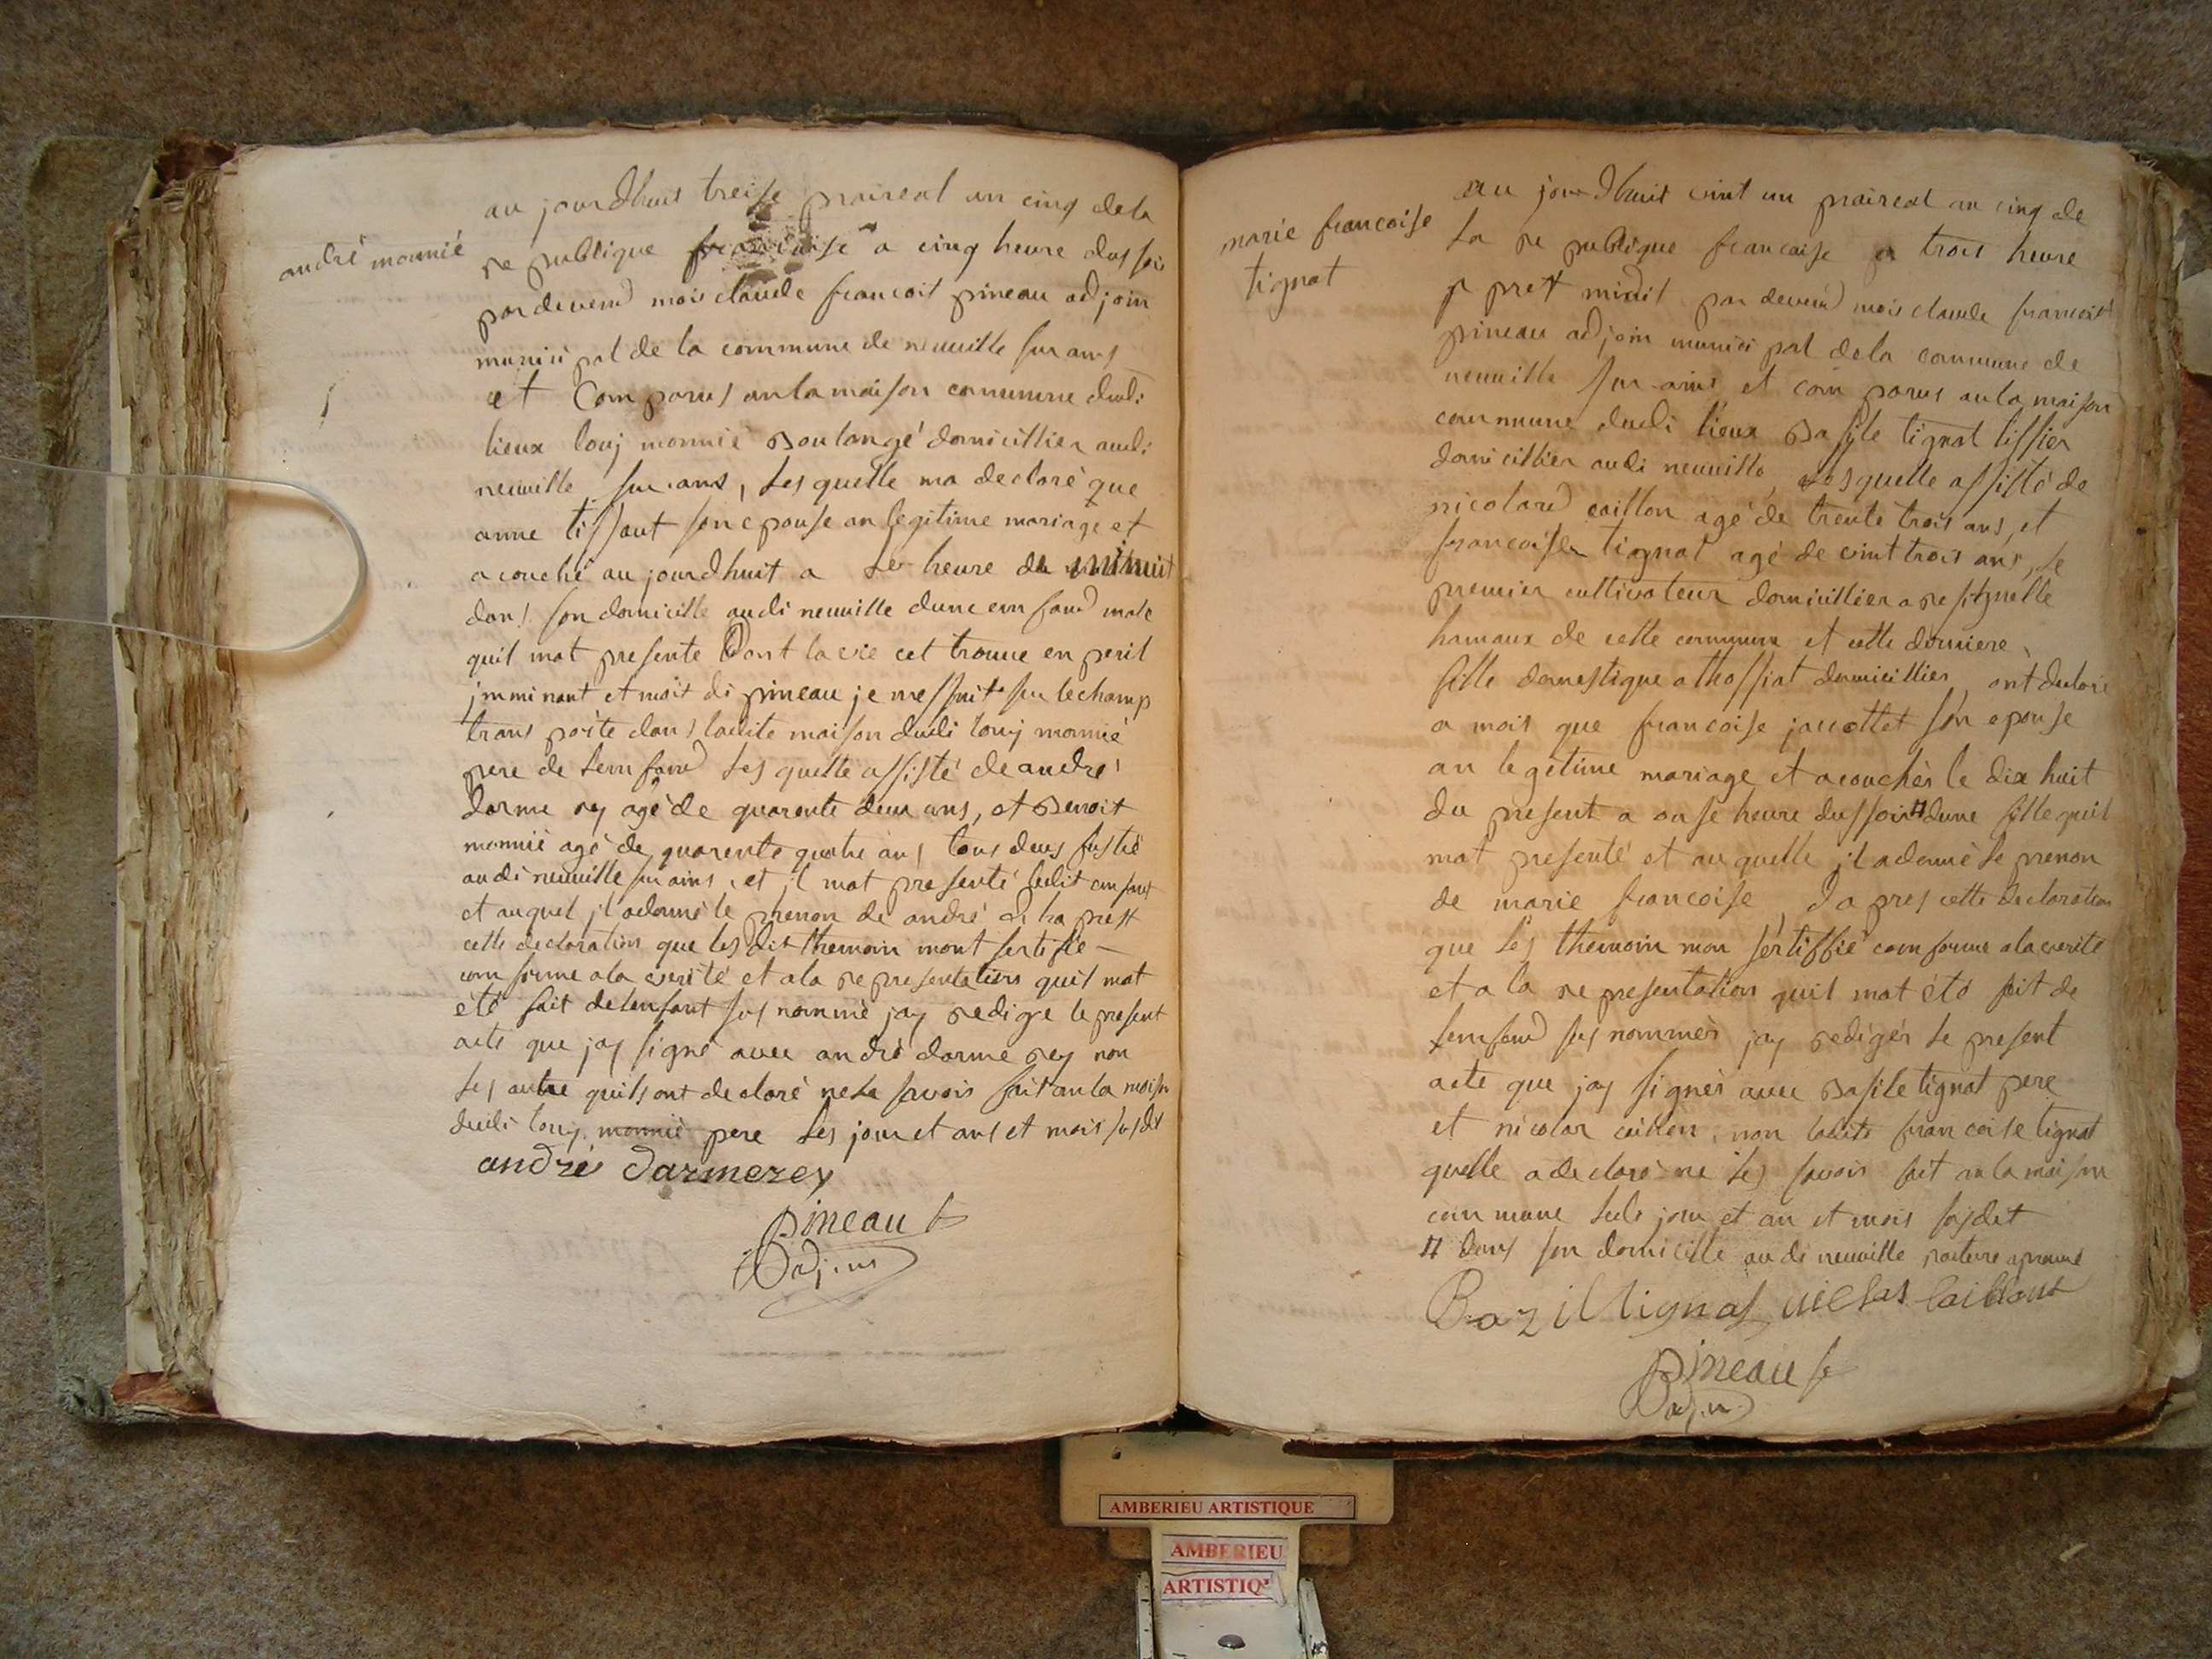 andré monnié
au jourdhuis treise praireal an cinq de la
republique francaise a cinq heure dus soir
par devend mois claude francois pineau adjoin
municipal de la commune de neuville sur ains
et Comparus an la maison commune dudi
lieux louj monnié Boulangé domicillier audi
neuville sur ains, Les quelle ma declaré que
anne tissaut son epouse an legitime mariage et
acouché au jourdhuit a Les heure de minuit
dans son domicille audi neuville dune enn fand male
quil mat presente Dont la vie cet trouve en peril
jmminant et mois di pineau je mes suit sur le champ
trans porte dans ladite maison dudi louj monnié
pere de lenn fand Les quelle assisté de andré
darme rey agé de quarente deux ans, et Benoit
monnié agé de quarente quatre ans tous deus
audi neuville sur ains, et jl mat presenté ledit enn fant
et auquel jl adonné le prenon de andré prest
cette declaration que les dit themoin mont sertifié
conn forme a la verité et a la representations quil mat
été fait delenfant sus nommé jay redige le present
acte que jay signé avec andré darme rey non
Les autre quils ont declaré ne Le savoir fait an la maison
dudi louj monnié pere Les jour et ans et mois susdit
andré Darmerey
pineau
adjoin
marie francoise
tignat
au jourdhuit vint un praireal an cinq de
La republique francaise a trois heure
apprest midit par devend mois claude francois
pineau adjoin municipal dela commune de
neuville sur ains et com parus an la maison
commune dudi lieux Basile tignat tissier
domicillier audi neuville Les quelle assisté de
nicolard caillon agé de trente trois ans, et
francoise tignat agé de vint trois ans, Le
premier cultivateur domicillier a resignelle
hamaux de cette commune et cette derniere
fille domestique a thossiat domicillier, ont declaré
a mois que francoise jacottet son epouse
an legétime mariage et acouchér le dix huit
du present a onse heure dus soir # dune fille quil
mat presenté et au quelle jl adonné Le prenon
de marie francoise Dapres cette declaration
que Les themoin mon sertiffié com forme ala verite
et a la representation quil mat été fait de
lenn fand sus nommér jay redigér Le present
acte que jay signér avec Basile tignat pere
et nicolar caillon, non ladite francoise tignat
quelle a declaré ne Les savoir fait an la maison
commune Ledi jour et an et mois susdit
# dans son domicille audi neuville
Bazil tignat nicolas caillont
pineau
adjoin
AMBERIEU ARTISTIQUE
AMBERIEU
ARTISTIQ